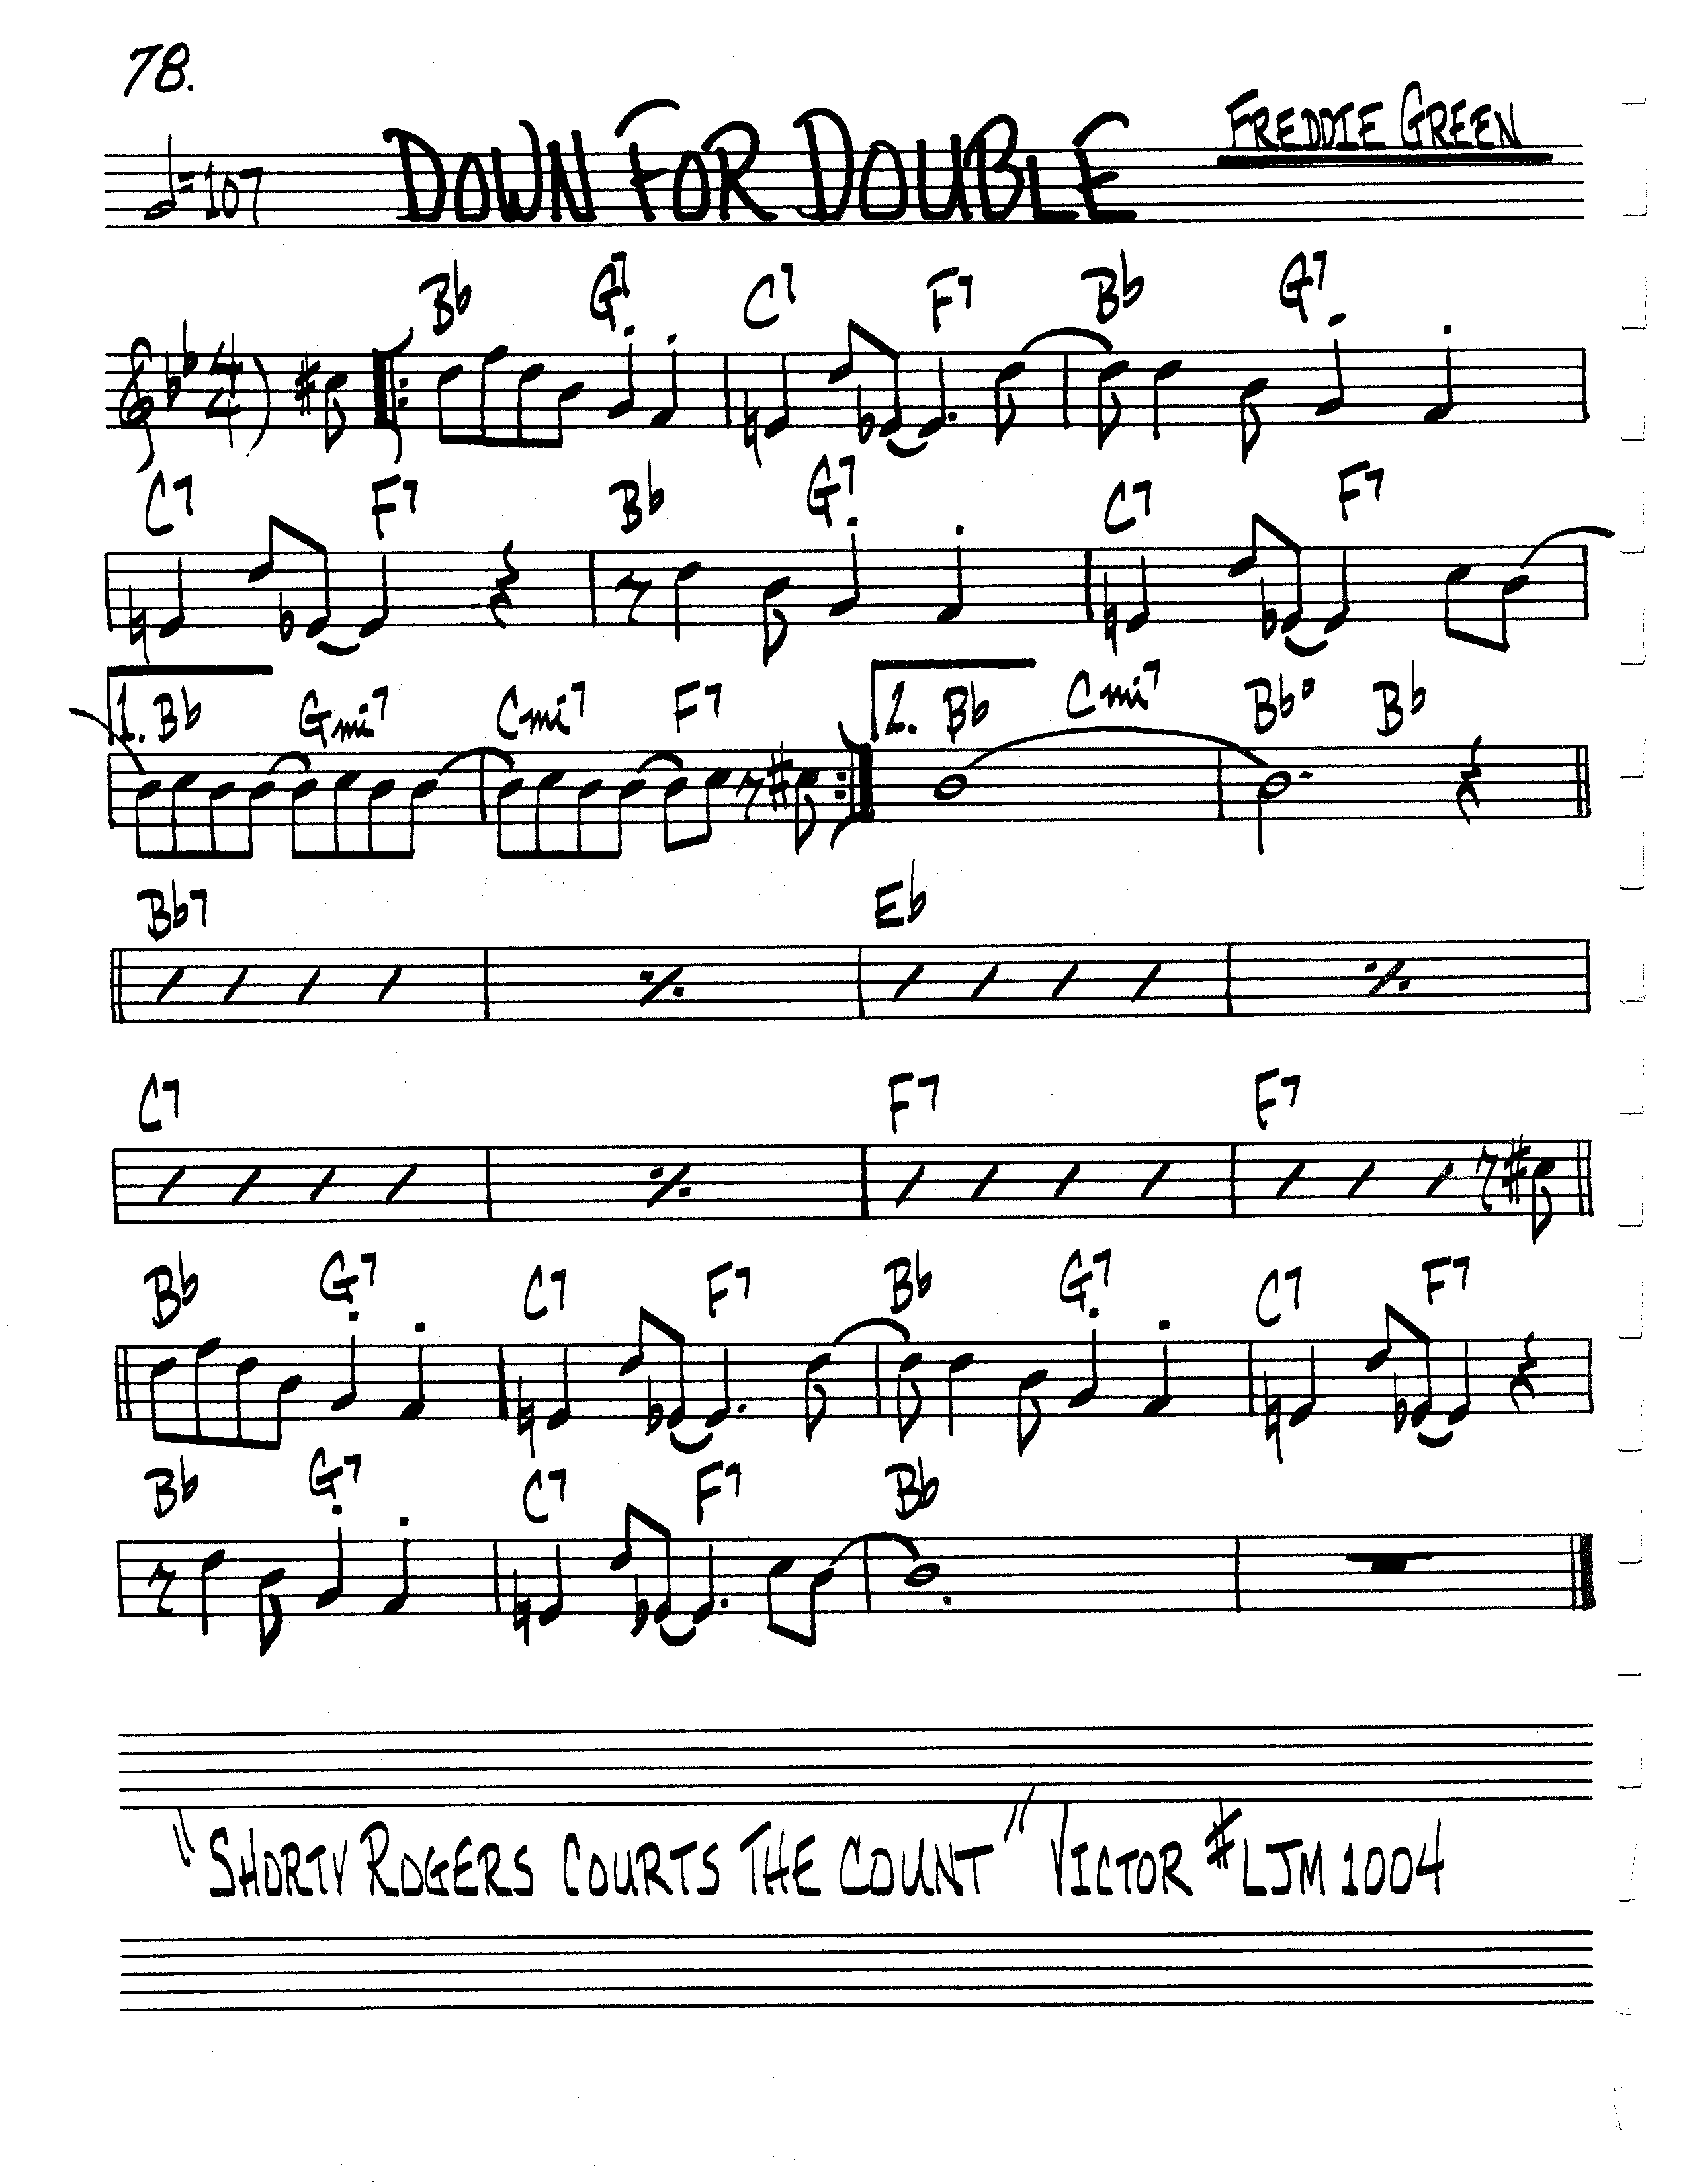 78.
FREDDIE GREEN
𝅗𝅥=107 DOWN FOR DOUBLE
Bb G7 C7 F7 Bb G7
4/4
C7 F7 Bb G7 C7 F7
1. Bb Gmi7 Cmi7 F7 2. Bb Cmi7 Bb° Bb
Bb7 Eb
C7 F7 F7
Bb G7 C7 F7 Bb G7 C7 F7
Bb G7 C7 F7 Bb
"SHORTY ROGERS COURTS THE COUNT" VICTOR #LJM 1004